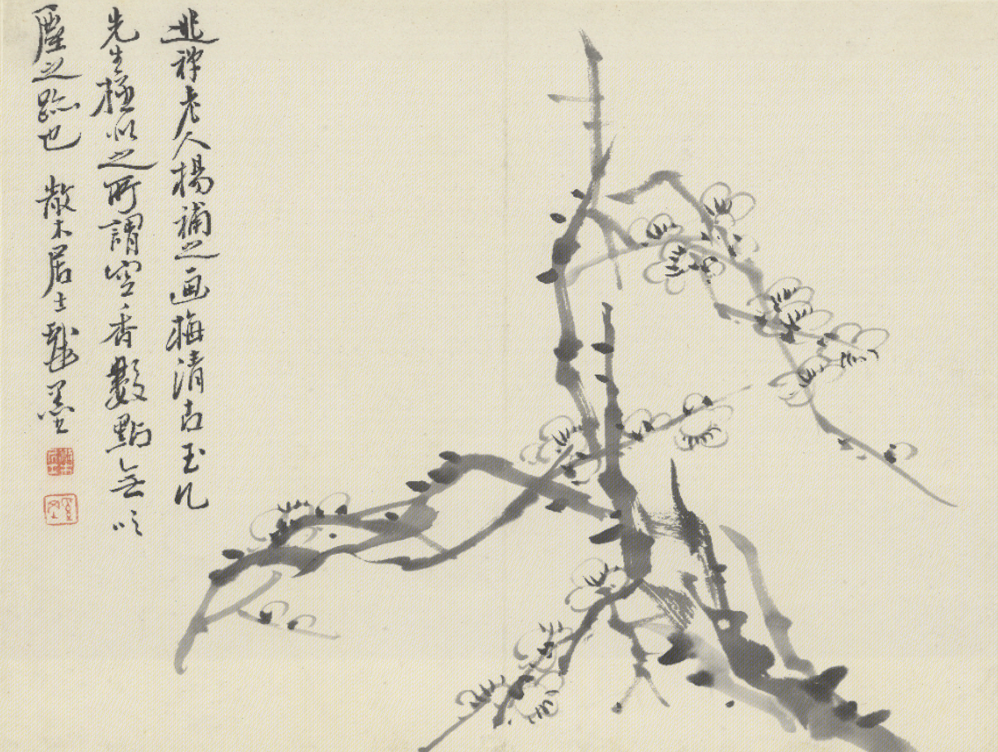 逃禅老人楊補之画梅清古玉几
先生極似之所謂空香數點無
塵之跡也 散木居士戲墨